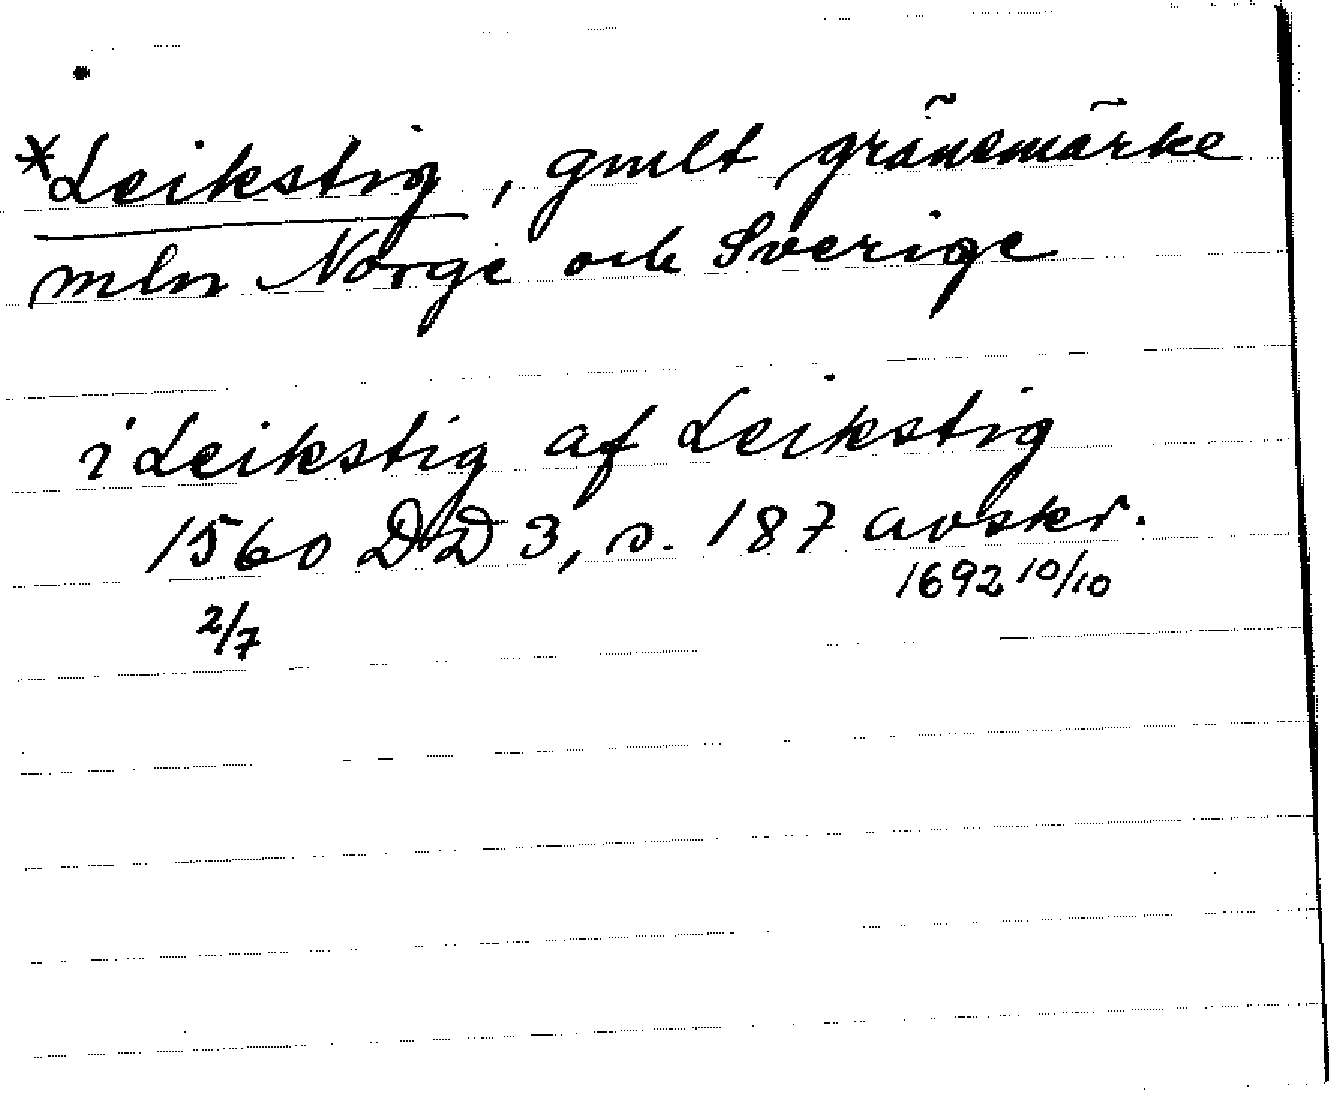 *Leikstig, gmlt gränsmärke
mln Norge och Sverige
i Leikstig af Leikstig
1560 DD 3, s. 187 avskr.
1692 10/10
2/7